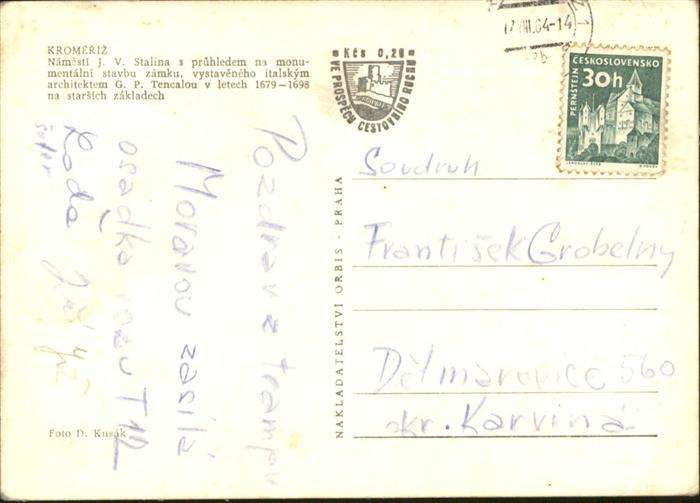 KROMĚŘÍŽ
Náměstí J. V. Stalina s průhledem na monu-
mentální stavbu zámku, vystavěného italským
architektem G. P. Tencalou v letech 1679—1698
na starších základech
Kčs 0,20
VE PROSPĚCH CESTOVNÍHO RUCHU
17.VIII.64-14
ČESKOSLOVENSKO
30h
PERNŠTEJN
Pozdrav z trampu
Moravou zasílá
osádka vozu T
Laďa Jiří
NAKLADATELSTVÍ ORBIS - PRAHA
Soudruh
František Grobelny
Dětmarovice 560
okr. Karviná
Foto D. Kusák